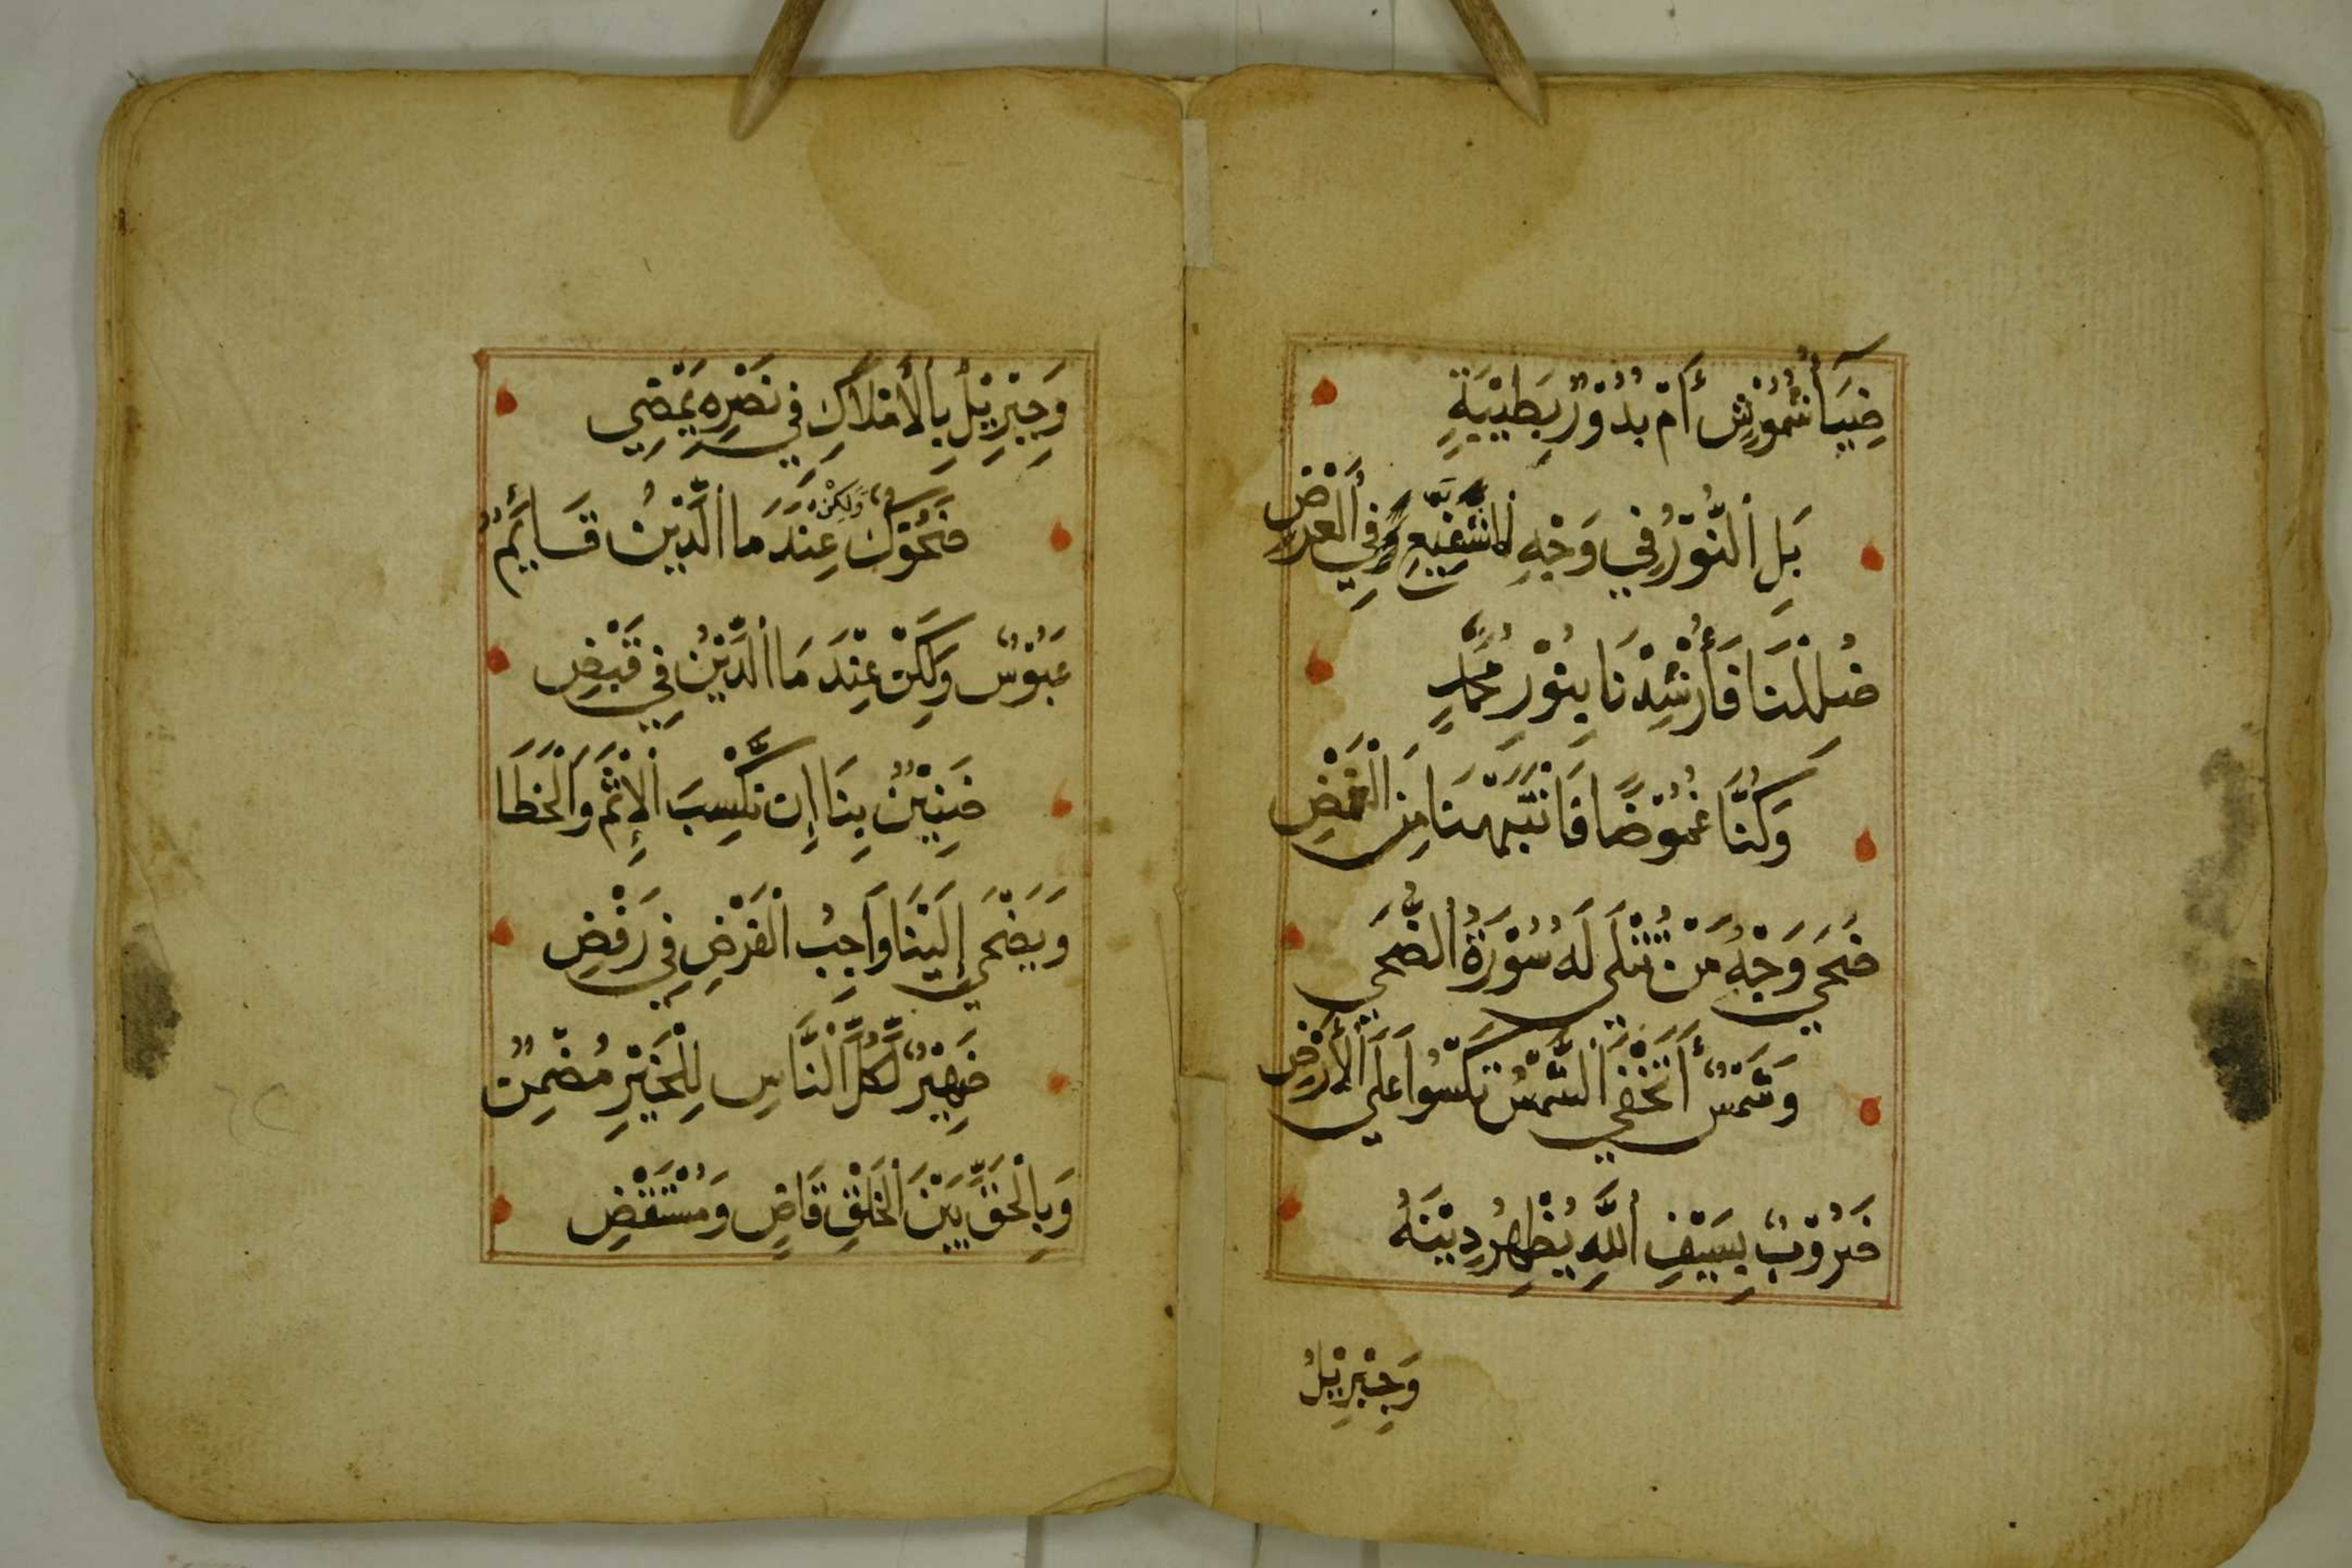 ضِيَآ شُمُوْسٍ أَمْ بُدُوْرٌ بِطَيْبَةٍ
بَلِ النُّوْرُ فِي وَجْهِ الشَّفِيْعِ وَفِي الْعَرْضِ
ضُلِلْنَا فَأَرْشِدْنَا بِنُوْرِ مُحَمَّدٍ
وَكُنَّا غُمُوْضًا فَانْتَبَهْنَا مِنَ الْغَمْضِ
ضَحَى وَجْهُ مَنْ تُتْلَى لَهُ سُوْرَةُ الضُّحَى
وَشَمْسٌ أَتَخْفَى الشَّمْسُ تَكْسُوا عَلَى الْأَرْضِ
ضَرُوْبٌ بِسَيْفِ اللَّهِ يُظْهِرُ دِيْنَهُ
وَجِبْرِيْلُ
وَجِبْرِيْلُ بِالْأَمْلَاكِ فِي نَصْرِهِ يَمْضِي
ضَحُوْكٌ وَلَكِنْ عِنْدَ مَا الدِّيْنُ قَايِمٌ
عَبُوْسٌ وَلَكِنْ عِنْدَ مَا الدِّيْنُ فِي قَبْضِ
ضَنِيْنٌ بِنَا إِنْ نَكْسِبَ الْإِثْمَ وَالْخَطَا
وَيَضْحَى إِلَيْنَا وَاجِبُ الْفَرْضِ فِي رَفْضِ
ضَهِيْرٌ لِّكُلِّ النَّاسِ لِلْخَيْرِ مُضْمِنٌ
وَبِالْحَقِّ بَيْنَ الْخَلْقِ قَاضٍ وَمُسْتَقْضِ